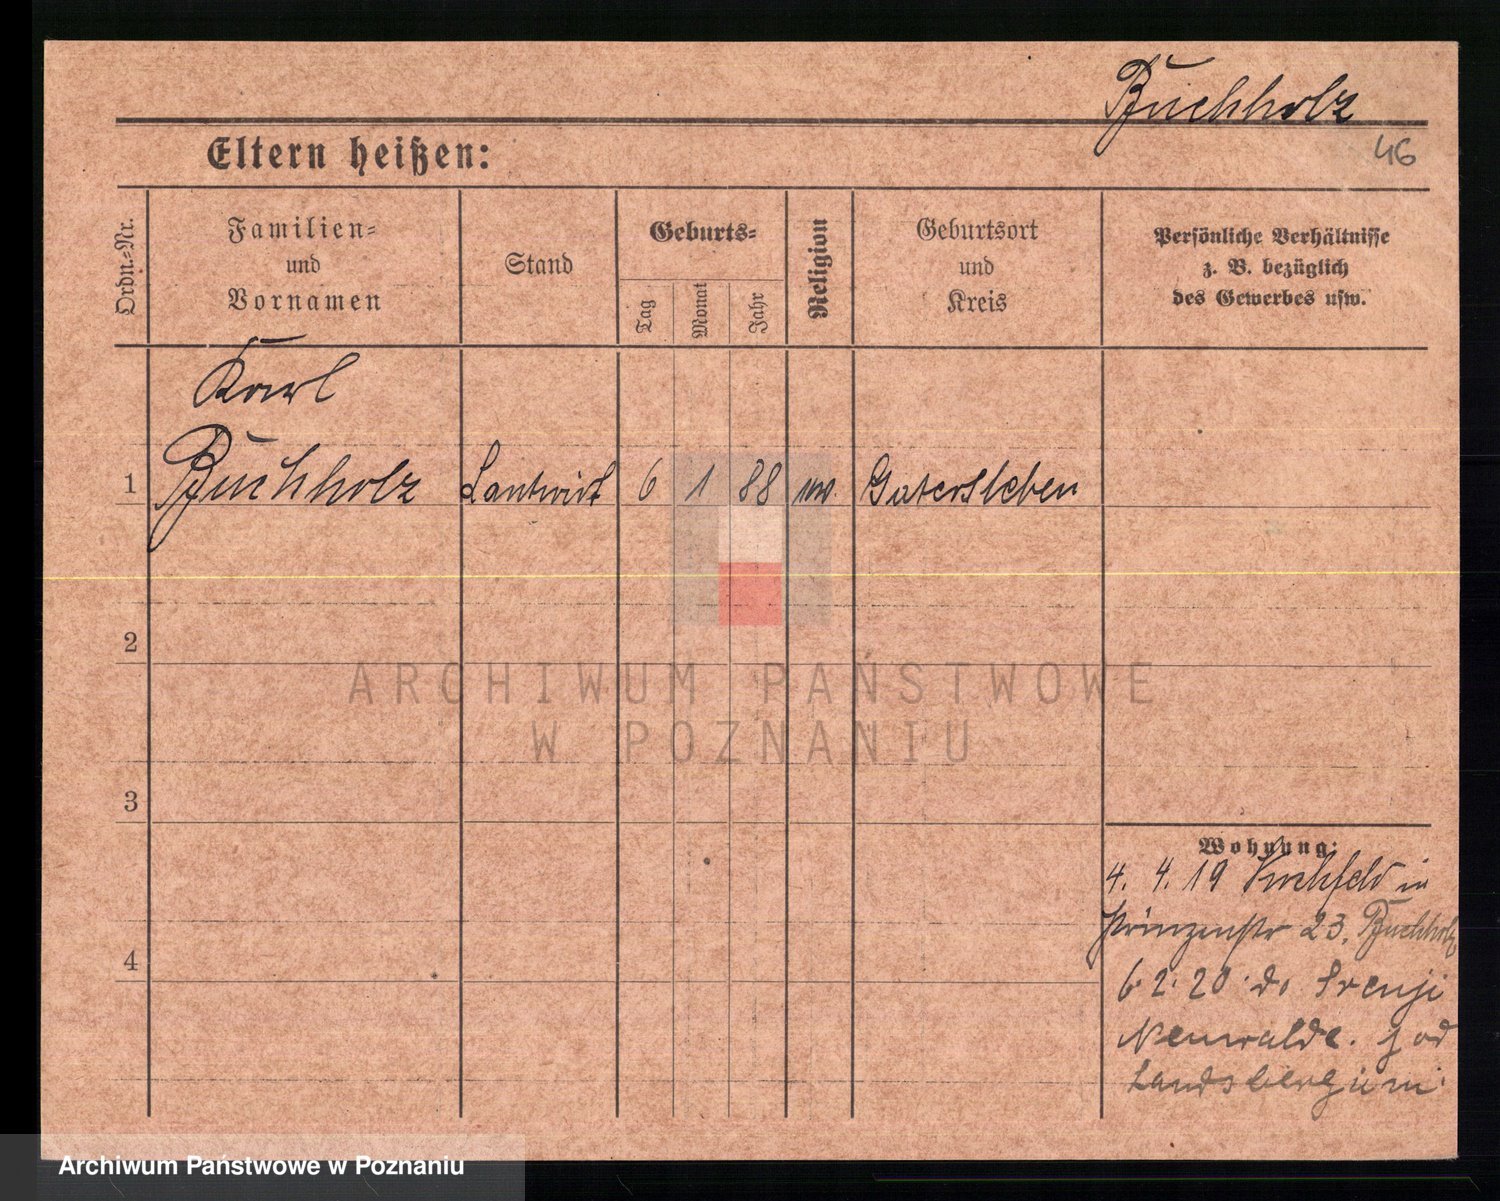 Buchholz
46
Eltern heißen:
Ordn.-Nr.
Familien-
und
Vornamen
Stand
Geburts-
Tag
Monat
Jahr
Religion
Geburtsort
und
Kreis
Persönliche Verhältnisse
z. B. bezüglich
des Gewerbes usw.
Karl
1 Buchholz Landwirt 6 1 88 Gatersleben
2
ARCHIWUM PAŃSTWOWE
W POZNANIU
3
Wohnung:
4. 4. 19 in
Prinzenstr 23. Buchholz
4
6. 2. 20. do
Neuwalde.
Landsberg
Archiwum Państwowe w Poznaniu